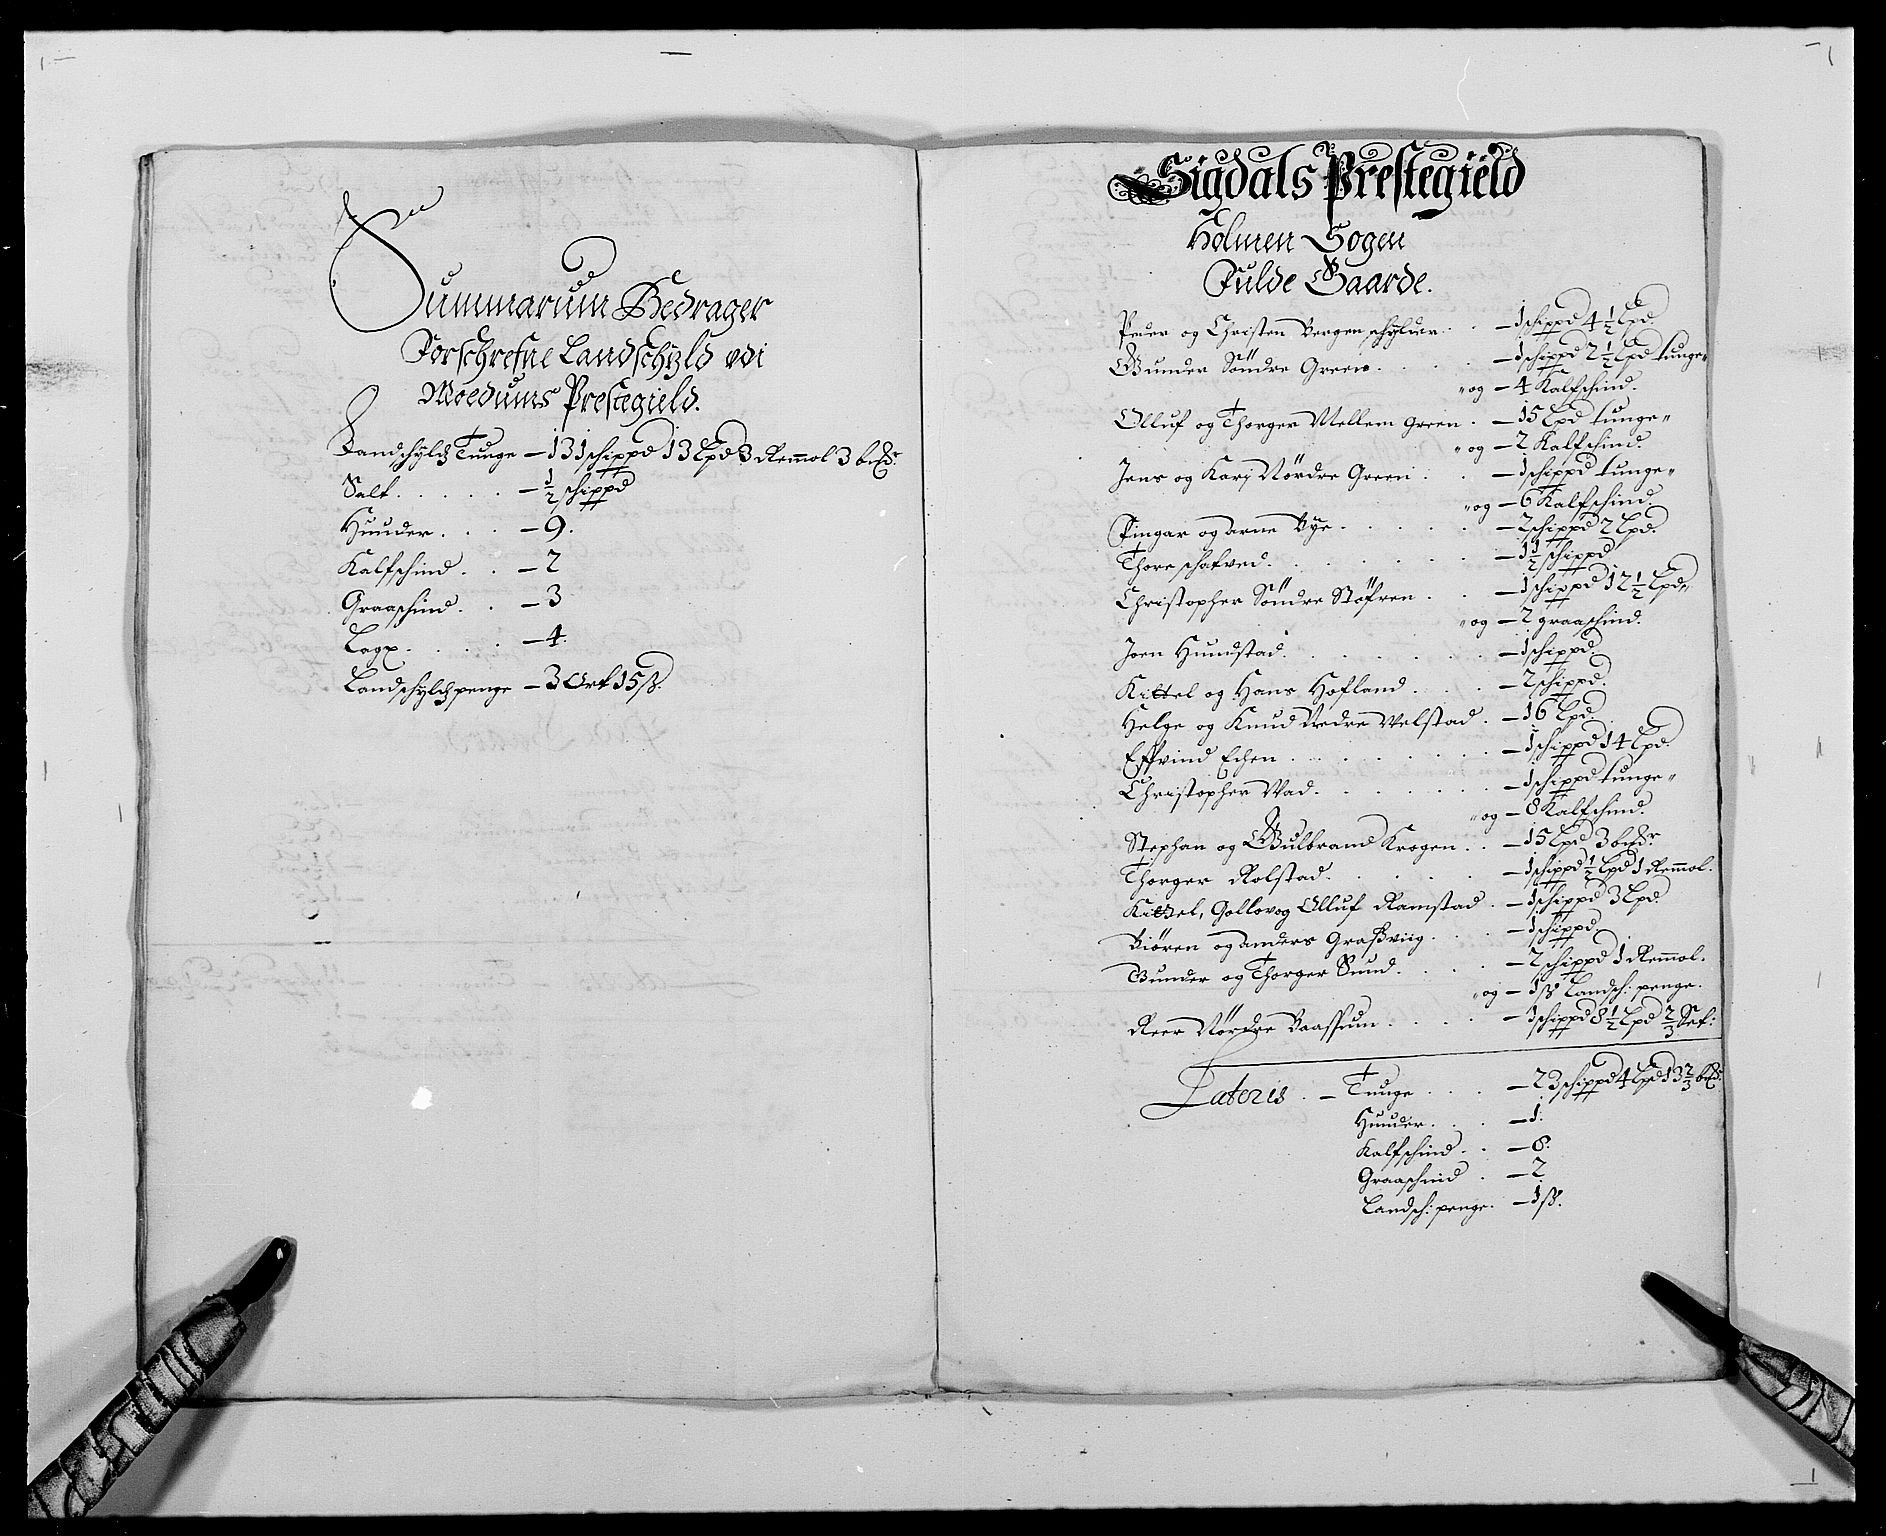 Summarum Bedrager
Forschrefne Landschyld udi
Moedums Prestegield.
Landschyld Tunge – 131 schippd 13 Lpd 3 Remol 3 bₔr:
Salt . . . . . – ½ schippd
Huuder . . . – 9.
Kalfschind . . – 2
Graaschind . . – 3
Lagx . . . . – 4.
Landschyldpenge – 3 Ort 15 ß.
Sigdals Prestegield
Holmen Sogen
Fulde Gaarde.
Peder og Christen Bergen schyluer . . – 1 schippd 4½ Lpd
Gunder Söndre Green . . . . – 1 schippd 2½ Lpd tunge„
„og – 4 Kalfschind.
Olluf og Thorger Mellem Green . – 15 Lpd tunge„
„og – 2 Kalfschind.
Jens og Kari Nördre Green . . – 1 schippd tunge„
„og – 6 Kalfschind.
Fingar og Arne Bye . . . . . – 2 schippd 2 Lpd.
Thore schatved . . . . . . – 1½ schippd
Christopher Söndre Stöfren . . – 1 schippd 12½ Lpd„
„og – 2 graaschind.
Joen Hundstad . . . . . . – 1 schippd.
Kittel og Hans Hofland . . . – 2 schippd.
Helge og Knud Nedre Velstad . – 16 Lpd.
Effvind Echen . . . . . . – 1 schippd 14 Lpd.
Christopher Vad . . . . . . – 1 schippd tunge„
„og – 8 Kalfschind.
Stephan og Gulbrand Krogen . . – 15 Lpd 3 bₔr:
Thorger Rolstad . . . . . – 1 schippd ½ Lpd 1 Remol.
Kittel, Gollov og Olluf Ramstad . – 1 schippd 3 Lpd.
Biören og Anders Graßviig . . . – 1 schippd.
Gunder og Thorger Sund . . . . – 2 schippd 1 Remol.
„og – 1 ß Landsch: penge.
Reer Nördre Baassum . . . . – 1 schippd 8½ Lpd ⅔ Set:
Lateris . – Tunge . . . – 23 schippd 4 Lpd 13⅔ bₔ:
Huuder . . . – 1.
Kalfschind . . – 6.
Graaschind . – 2
Landsch: penge . – 1 ß.